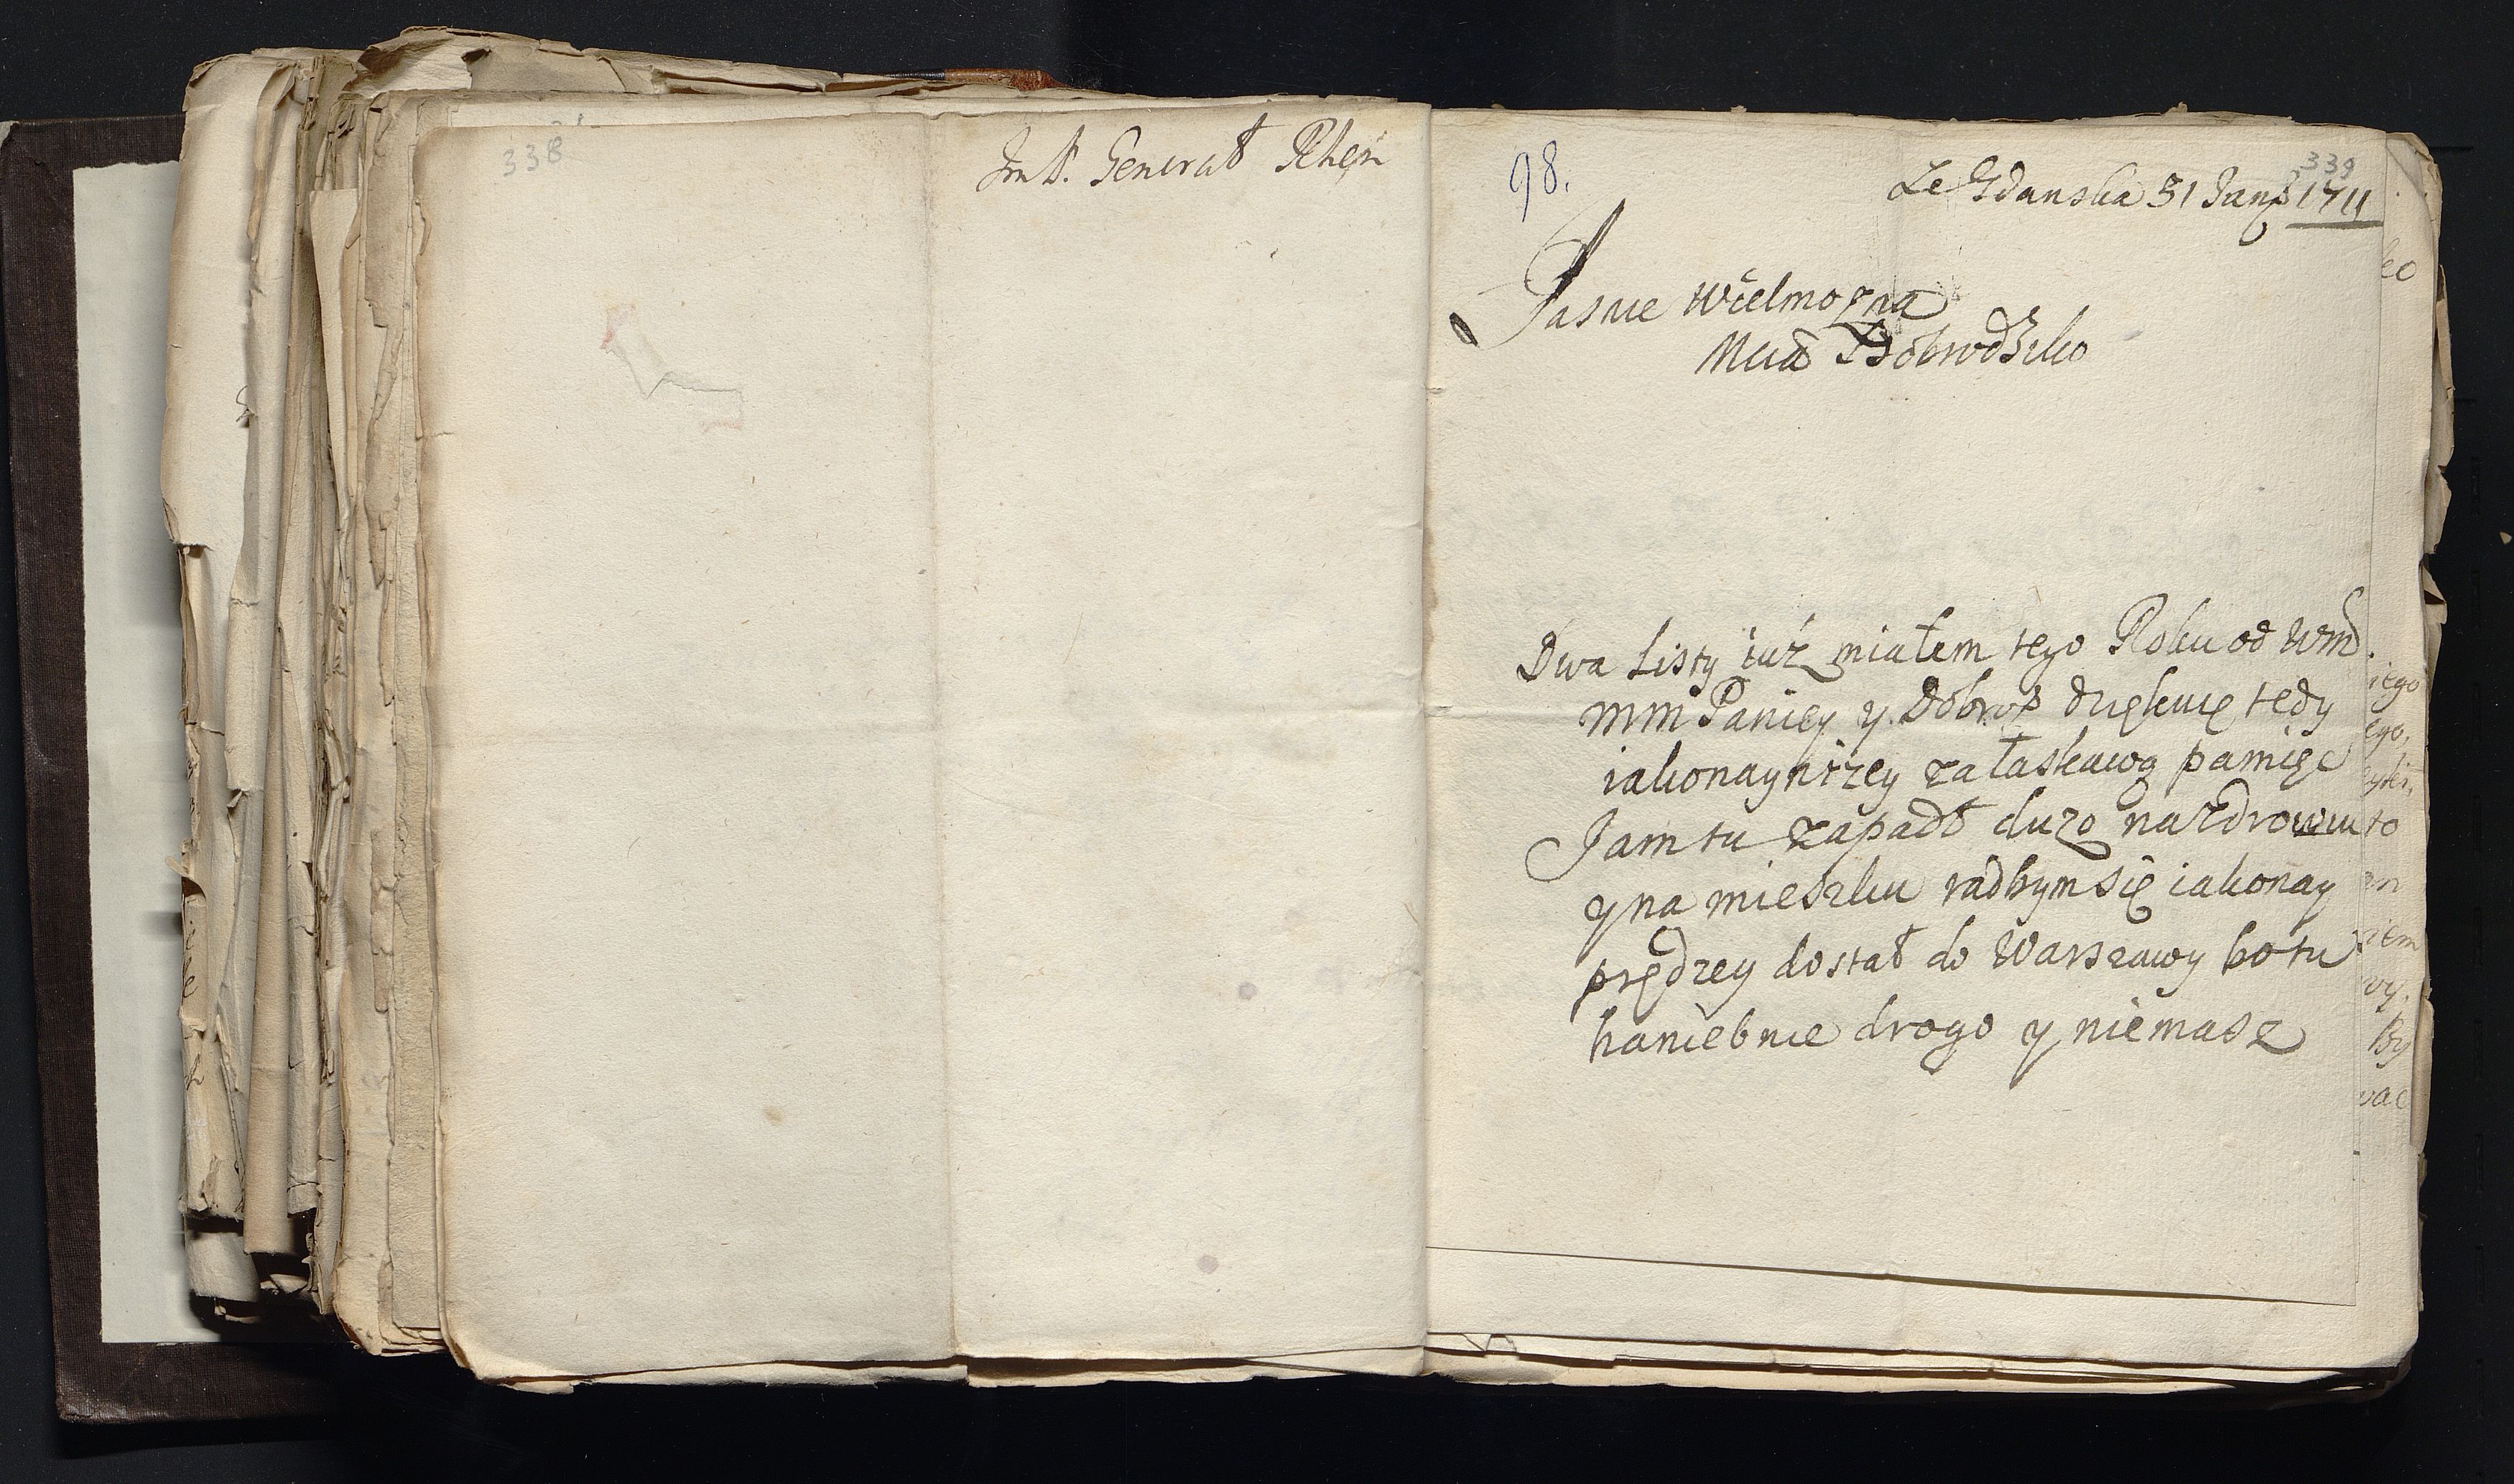 338
Jmp. Generał Rhen
98.
339
Ze Gdanska 31 Jan 1711
Jasnie Wielmozna
Mcia Dobrodziko
Dwa Listy iuż miałem tego Roku od Wm
mm Paniey y Dobro dziękuię tedy
iakonayniżey za łaskawą pamięc
Jam tu zapadł duzo na zdrowiu
y na mieszku radbym się iakonay
prędzey dostał do Warszawy bo tu
haniebnie drogo y niemasz